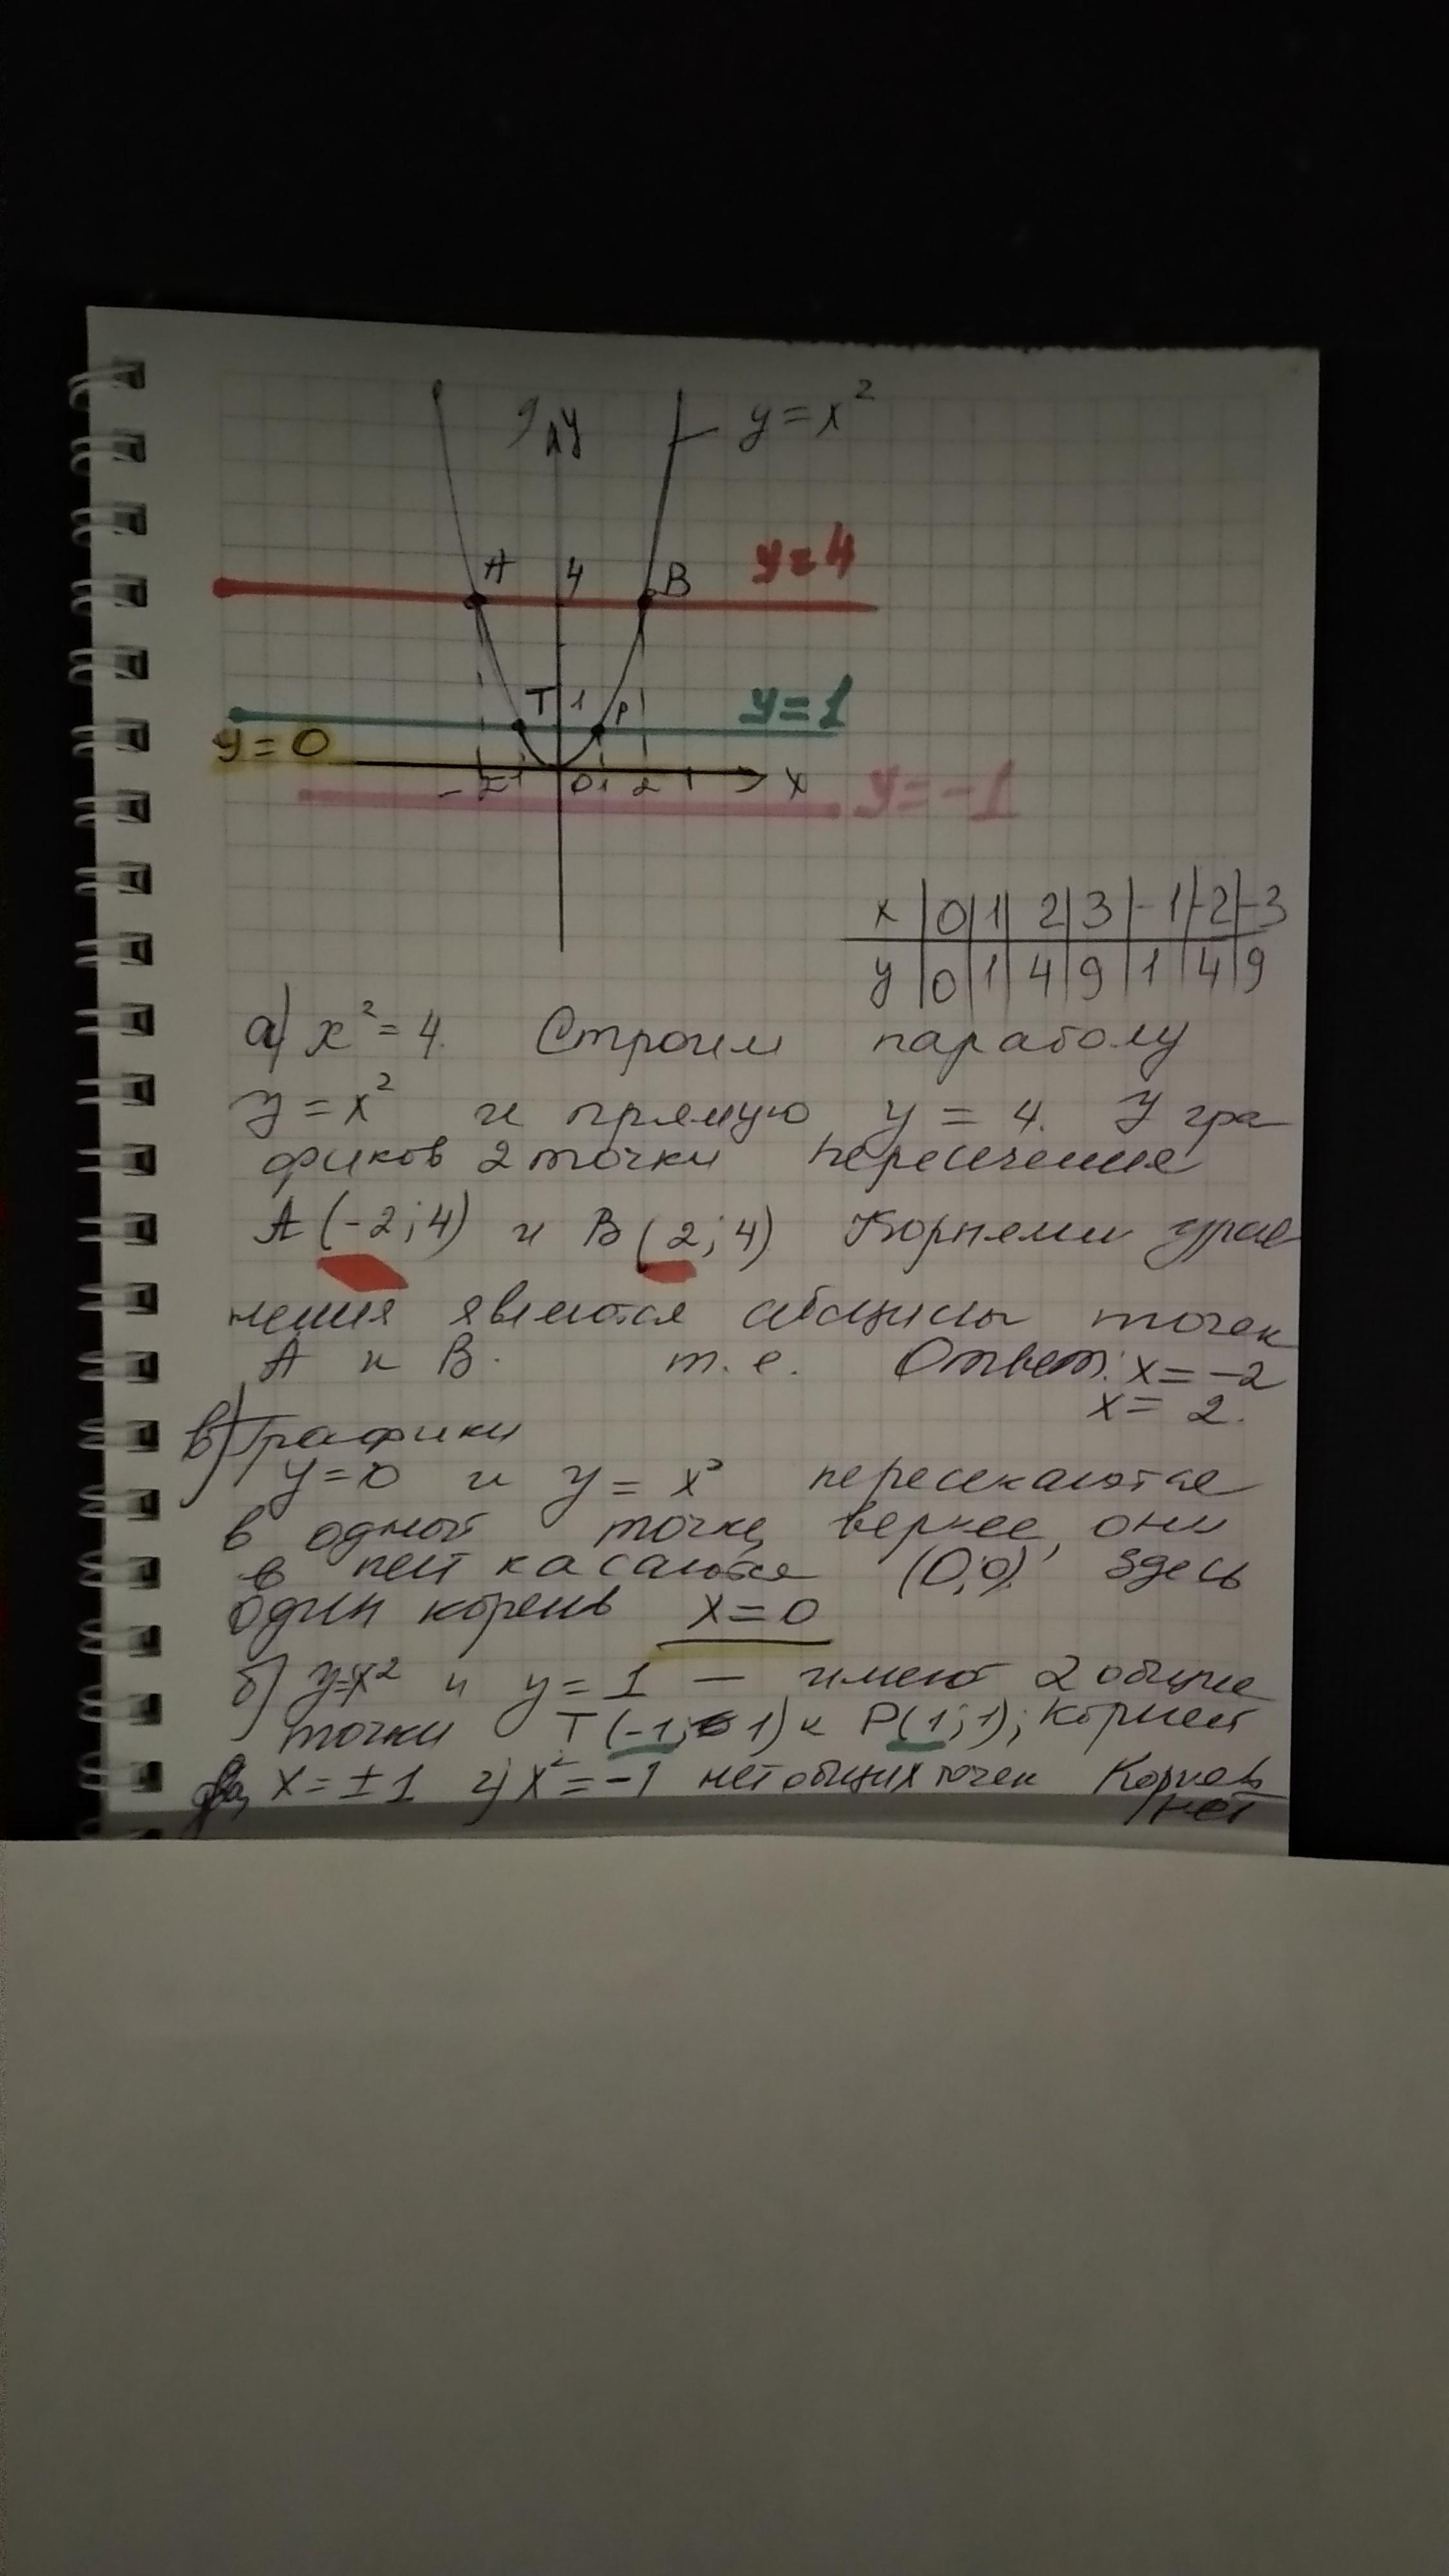 9 y
y = x²
A 4 B y = 4
T 1 P y = 1
y = 0
-2 -1 0 1 2 x
y = -1
x | 0 | 1 | 2 | 3 | -1 | -2 | -3
y | 0 | 1 | 4 | 9 | 1 | 4 | 9
а) x² = 4. Строим параболу
y = x² и прямую y = 4. У гра
фиков 2 точки пересечения
A (-2; 4) и B (2; 4) Корнями урав
нения являются абсциссы точек
A и B. т.е. Ответ: x = -2
x = 2.
в) Графики
y = 0 и y = x² пересекаются
в одной точке, вернее, они
в ней касаются (0;0). Здесь
один корень x = 0
б) y=x² и y = 1 — имеют 2 общие
точки T (-1; 1) и P(1; 1); корней
два, x = ±1 г) x² = -1 нет общих точек Корней
нет